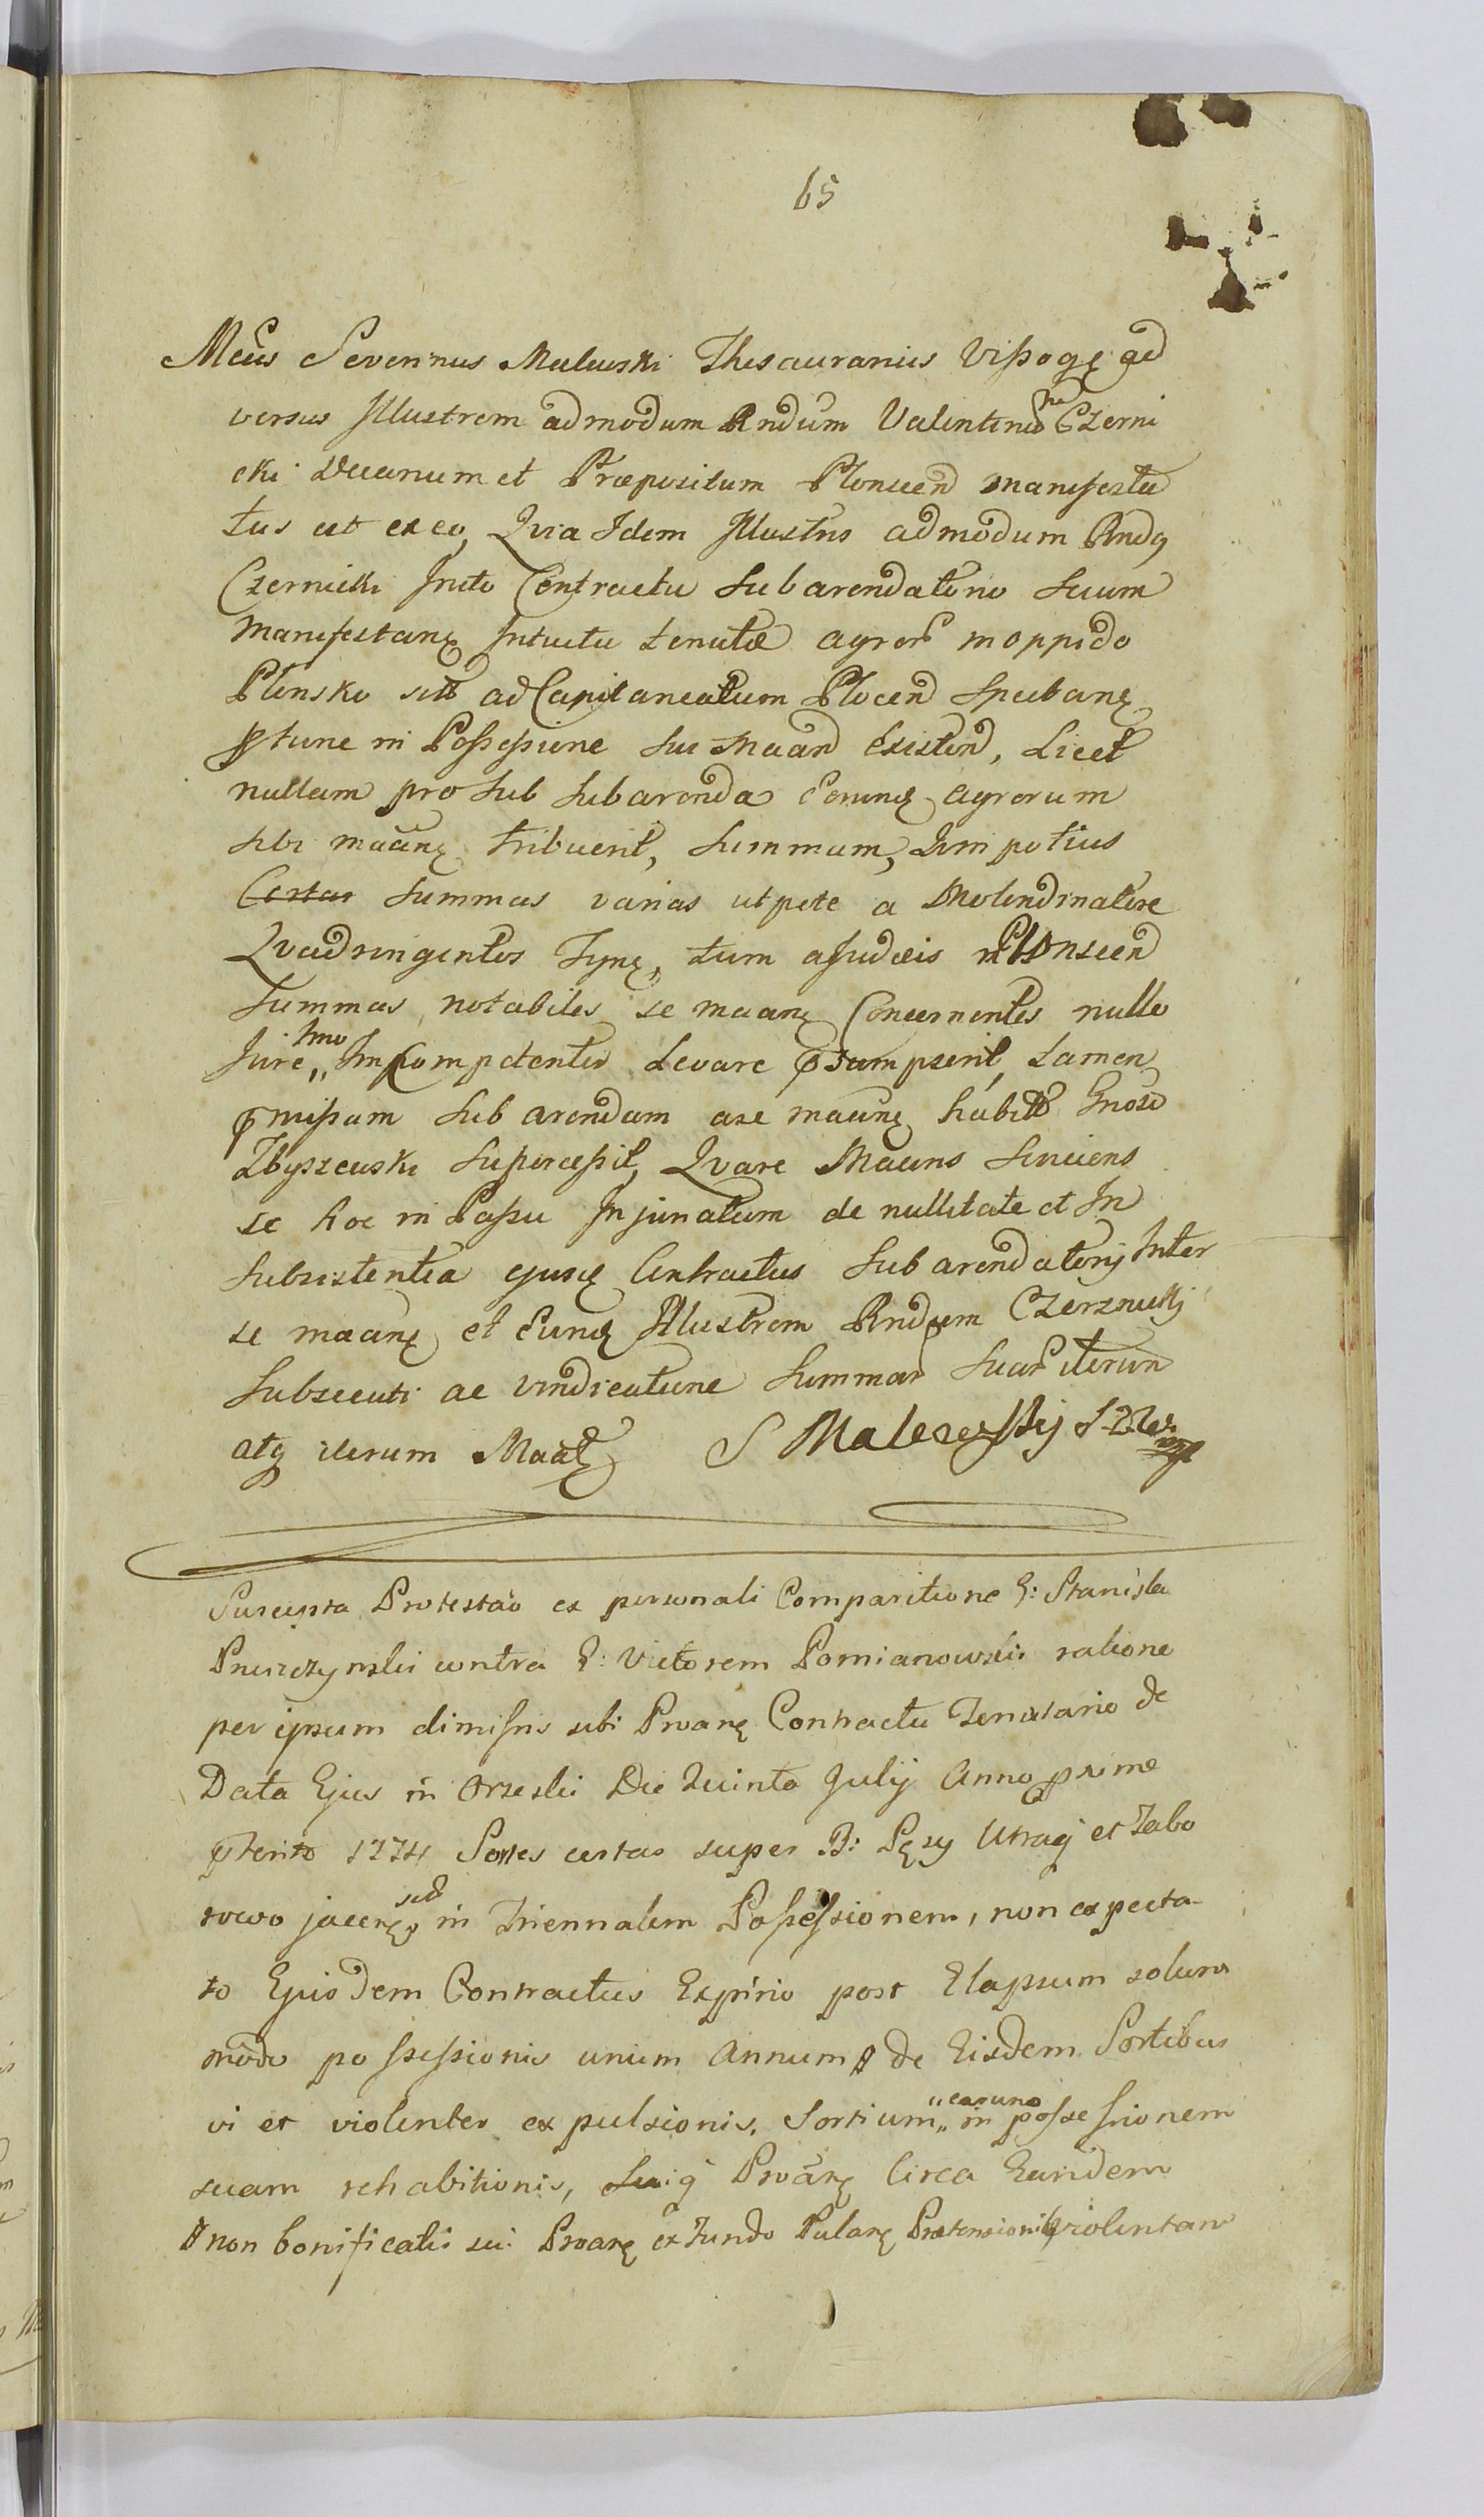 65
Mcus Severinus Malewski Thesaurarius Vissogę ad
versus Illustrem admodum Rndum Valentinũ Czerni
cki Decanum et Præpositum Plonscen manifesta
tus est ex eo, Qvia Idem Illustris admodum Rndg
Czernicki Inito Contractu Subarendatorio Suum
Manifestanę Intuitu tenutæ agror in oppido
Plonsko sitt ad Capitaneatum Plocen Spectanę
tunc in Possessione sui Maan Existen, Licet
nullam pro sub Subarenda eorunę agrorum
sibi maanę tribuerit, Summam, Qvin potius
Certas Summas varias utpote a Molendinatore
Qvadringentos Tynę, tum a Judæis in Plonscen
Summas notabiles se maanę Concernentes nullo
Jure,, Incompetenter Levare psumpserit, tamen
pmissam Subarendam a se maanę habitt Gnoso
Zbyszewski Supercessit, Qvare Maans Sentiens
se hoc in Passu Injuriatum de nullitate et In
subsistentia ejusę Contractus Subarendatorij Inter
se maanę et Eunę Illustrem Rndum Czernicki
Subsecuti ac vindicatione Summar Suar iterum
atg iterum Maatę S Malewskij
Suscepta Protestão ex personali Comparitione G: Stanisla
Pruszczynski contra G: Victorem Pomianowski ratione
per ipsum dimissis sibi Proanę Contractu Tenutario de
Data Ejus in Orzeski Die Quinta Julij Anno proxime
pterito 1774 Sortes certas super B: Pęsy Utraq et Zabo
rowo jacenę sitt in Triennalem Possessionem, non expecta-
to Ejusdem Contractus Expirio post Elapsum solum
modo possessionis unum Annum de Eisdem Sortibus
vi et violenter expulsionis, Sortium,, earunę in possessionem
suam rehabitionis, Suiq Proanę Circa Eandem
non bonificatis sui Proanę ex Fundo Pulanę Prætensionib violentam